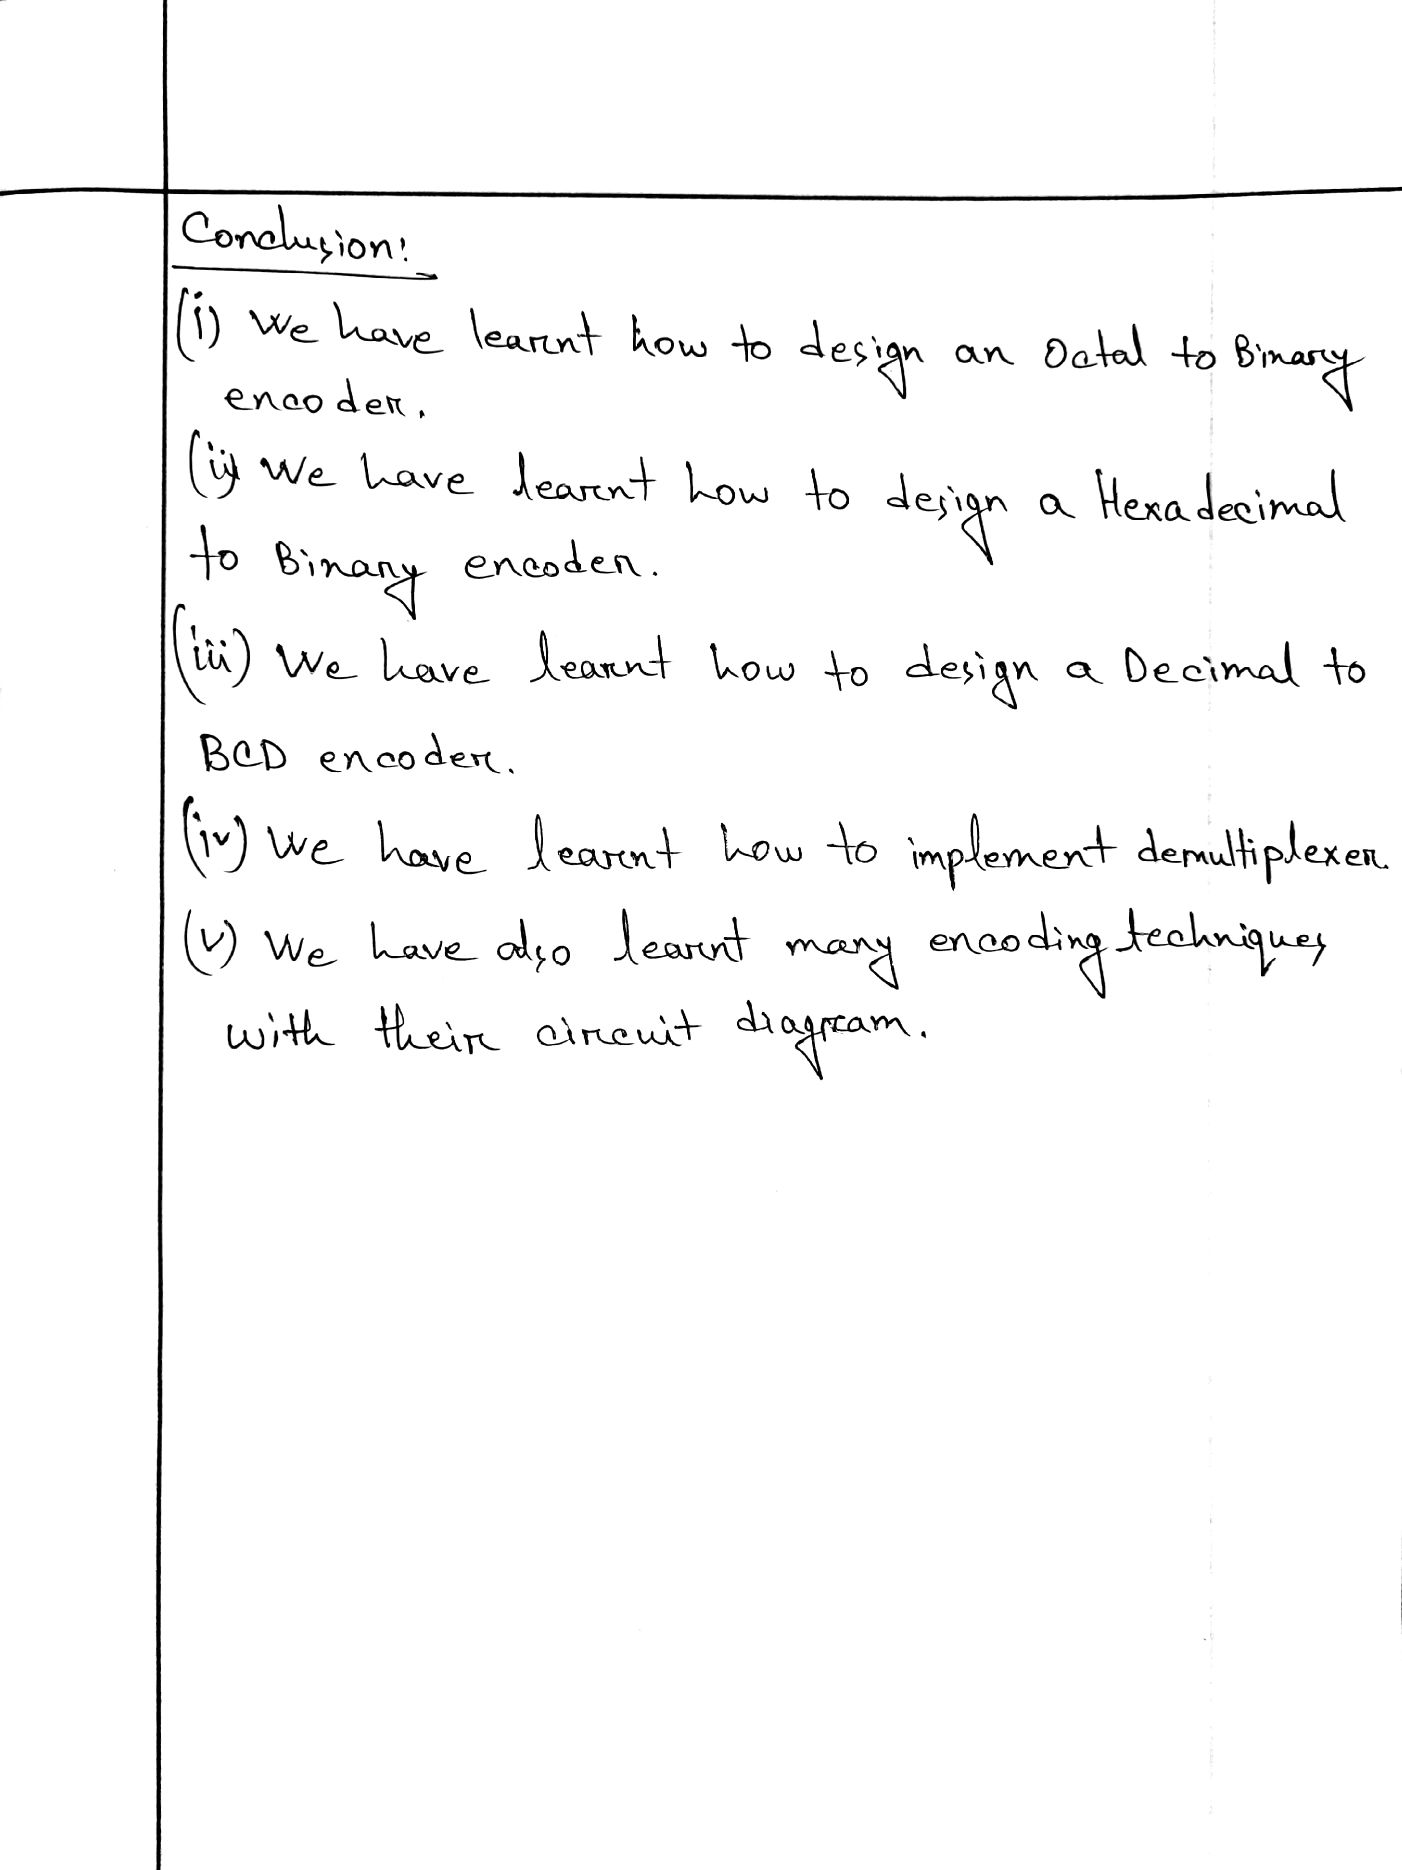 Conclusion:
(i) We have learnt how to design an Octal to Binary
encoder.
(ii) We have learnt how to design a Hexadecimal
to Binary encoder.
(iii) We have learnt how to design a Decimal to
BCD encoder.
(iv) We have learnt how to implement demultiplexer.
(v) We have also learnt many encoding techniques
with their circuit diagram.